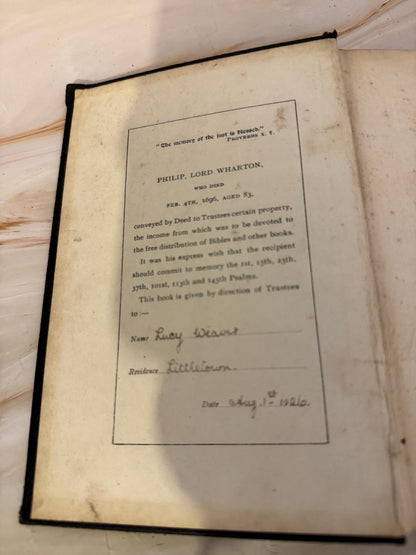 "The memory of the just is blessed."
PROVERBS X. 7.
PHILIP, LORD WHARTON,
WHO DIED
FEB. 4TH, 1696, AGED 83,
conveyed by Deed to Trustees certain property,
the income from which was to be devoted to
the free distribution of Bibles and other books.
It was his express wish that the recipient
should commit to memory the 1st, 15th, 25th,
37th, 101st, 113th and 145th Psalms.
This book is given by direction of Trustees
to:—
Name Lucy
Residence Littletown.
Date Aug. 1st 1926.